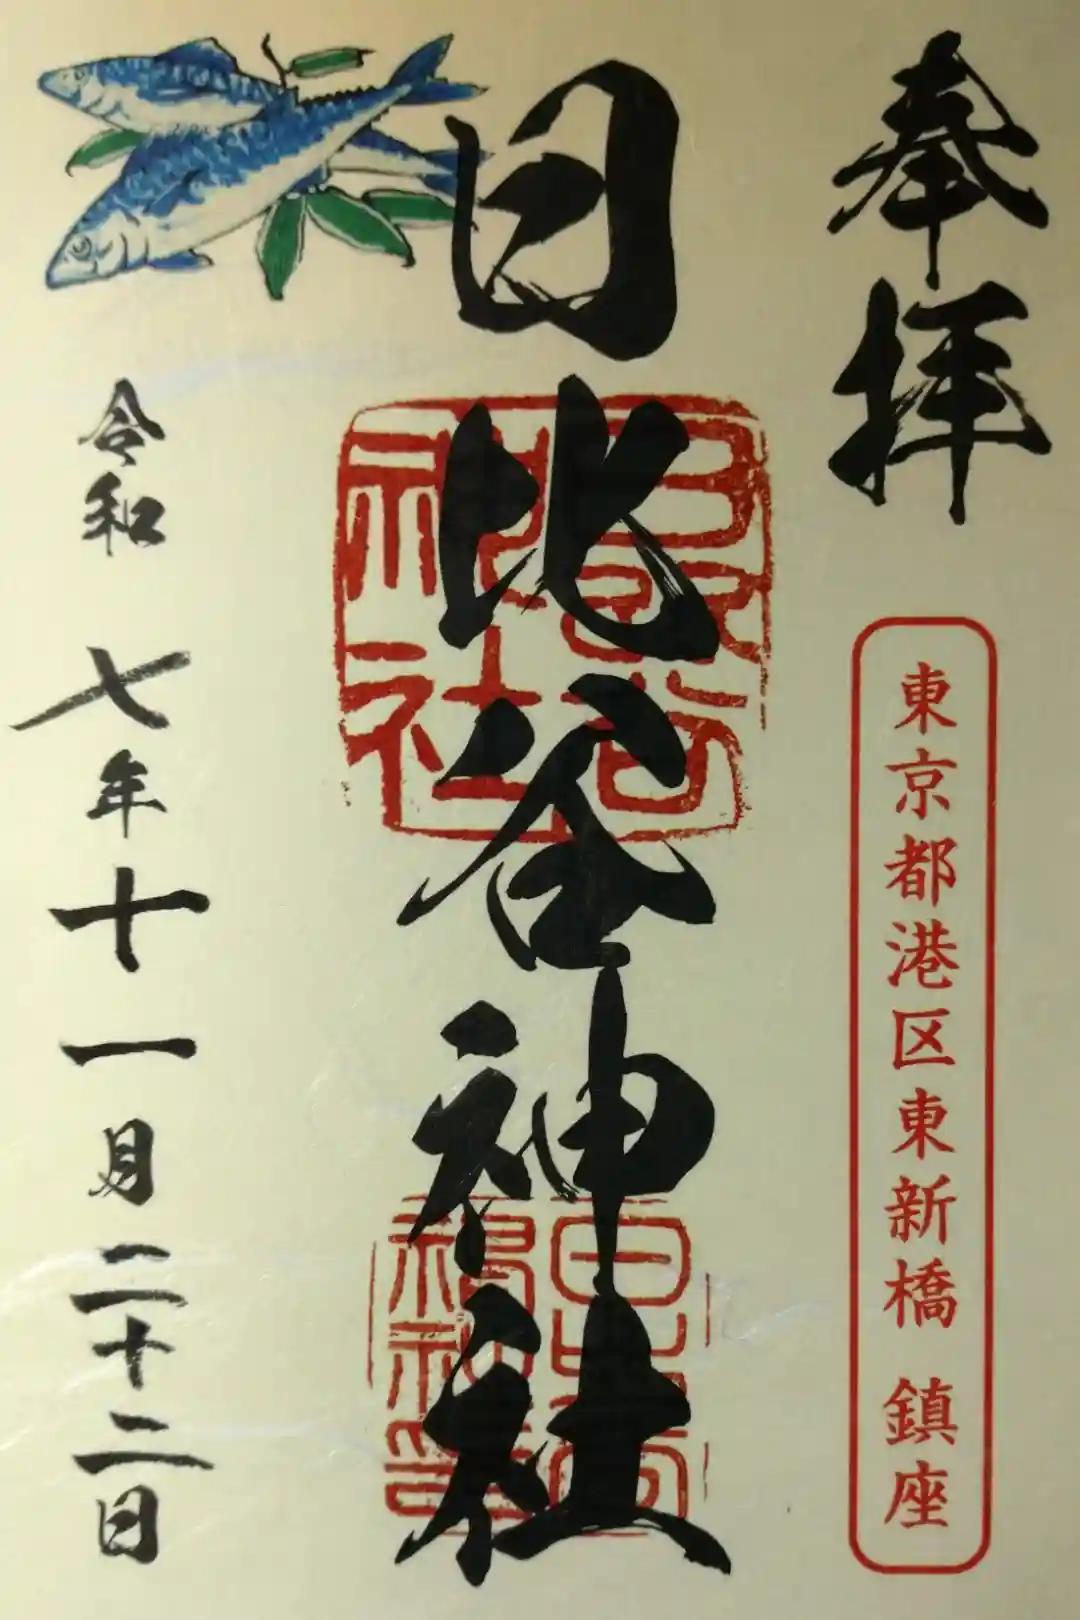 奉拝
東京都港区東新橋 鎮座
日比谷神社
令和 七年十一月二十二日